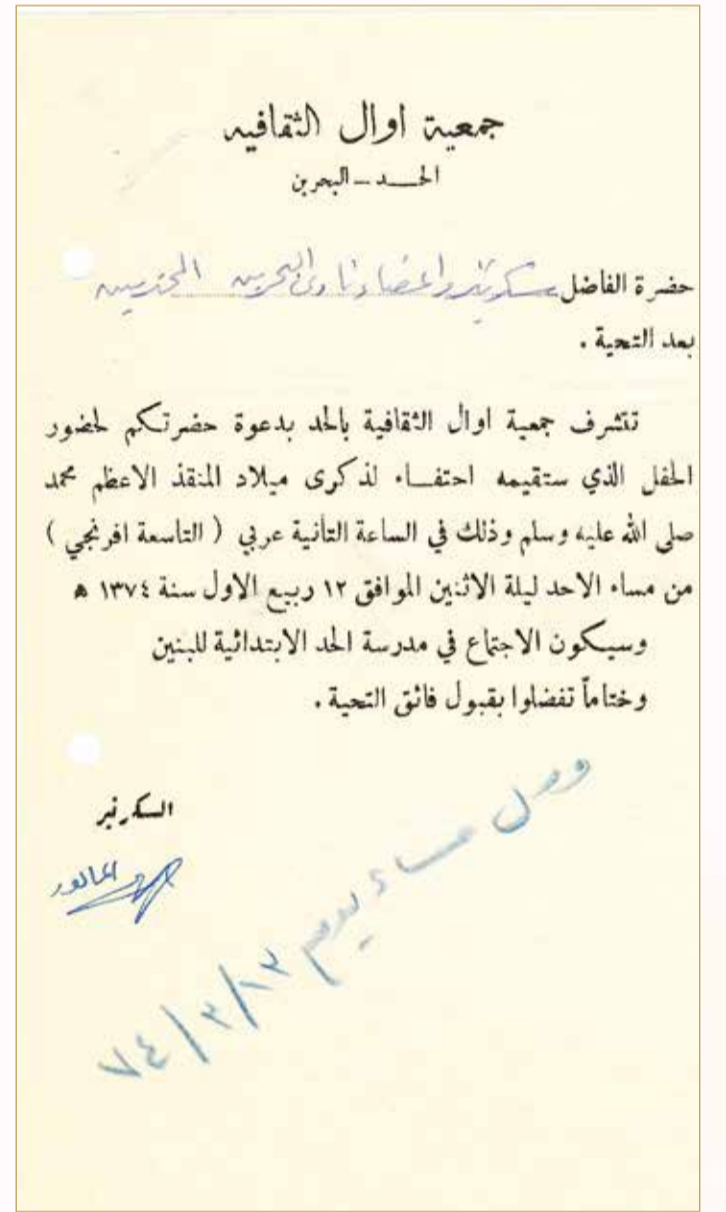 جمعية اوال الثقافيه
الحـــد ــ البحرين
حضرة الفاضل سكرتير واعضاء نادي البحرين المحترمين
بعد التحية .
تتشرف جمعية اوال الثقافية بالحد بدعوة حضرتكم لحضور
الحفل الذي ستقيمه احتفـــاء لذكرى ميلاد المنقذ الاعظم محمد
صلى الله عليه وسلم وذلك في الساعة الثانية عربي ( التاسعة افرنجي )
من مساء الاحد ليلة الاثنين الموافق ١٢ ربيع الاول سنة ١٣٧٤ ه
وسيكون الاجتماع في مدرسة الحد الابتدائية للبنين
وختاماً تفضلوا بقبول فائق التحية .
السكرتير
وصل مساء يوم ٧٤/٣/١٣